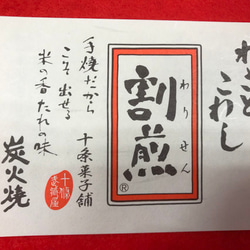 われこと
こわし
わりせん
割煎
®
十条菓子舗
手焼だから
こそ出せる
米の香たれの味
炭火焼